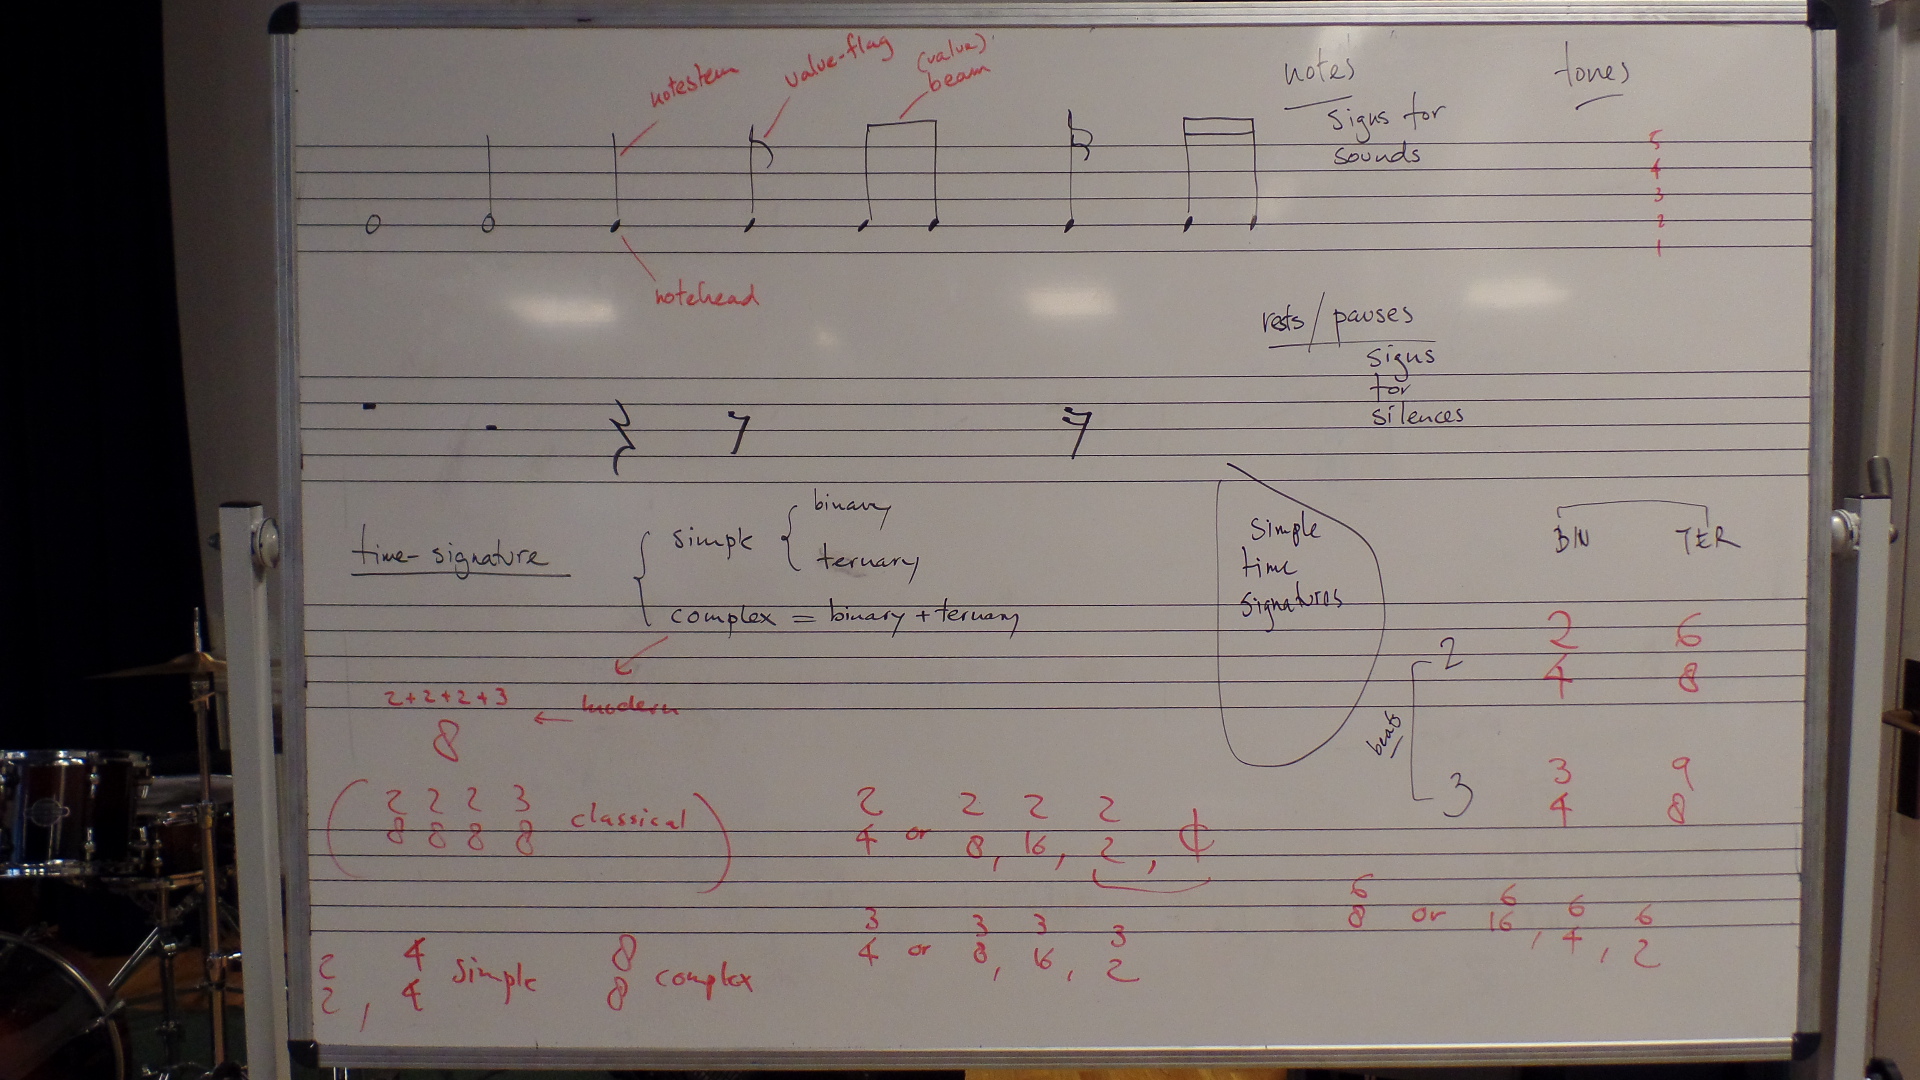 notestem
value-flag
(value)
beam
notes
signs for
sounds
tones
5
4
3
2
1
notehead
rests / pauses
signs
for
silences
time-signature
simple
binary
ternary
complex = binary + ternary
modern
2+2+2+3
8
2 2 2 3
8 8 8 8
classical
simple
time
signatures
BIN TER
beats
2
2 6
4 8
3
3 9
4 8
2 2 2 2
4 or 8, 16, 2, ¢
3 3 3 3
4 or 8, 16, 2
6 6 6 6
8 or 16, 4, 2
2 4 8
2, 4 simple 8 complex